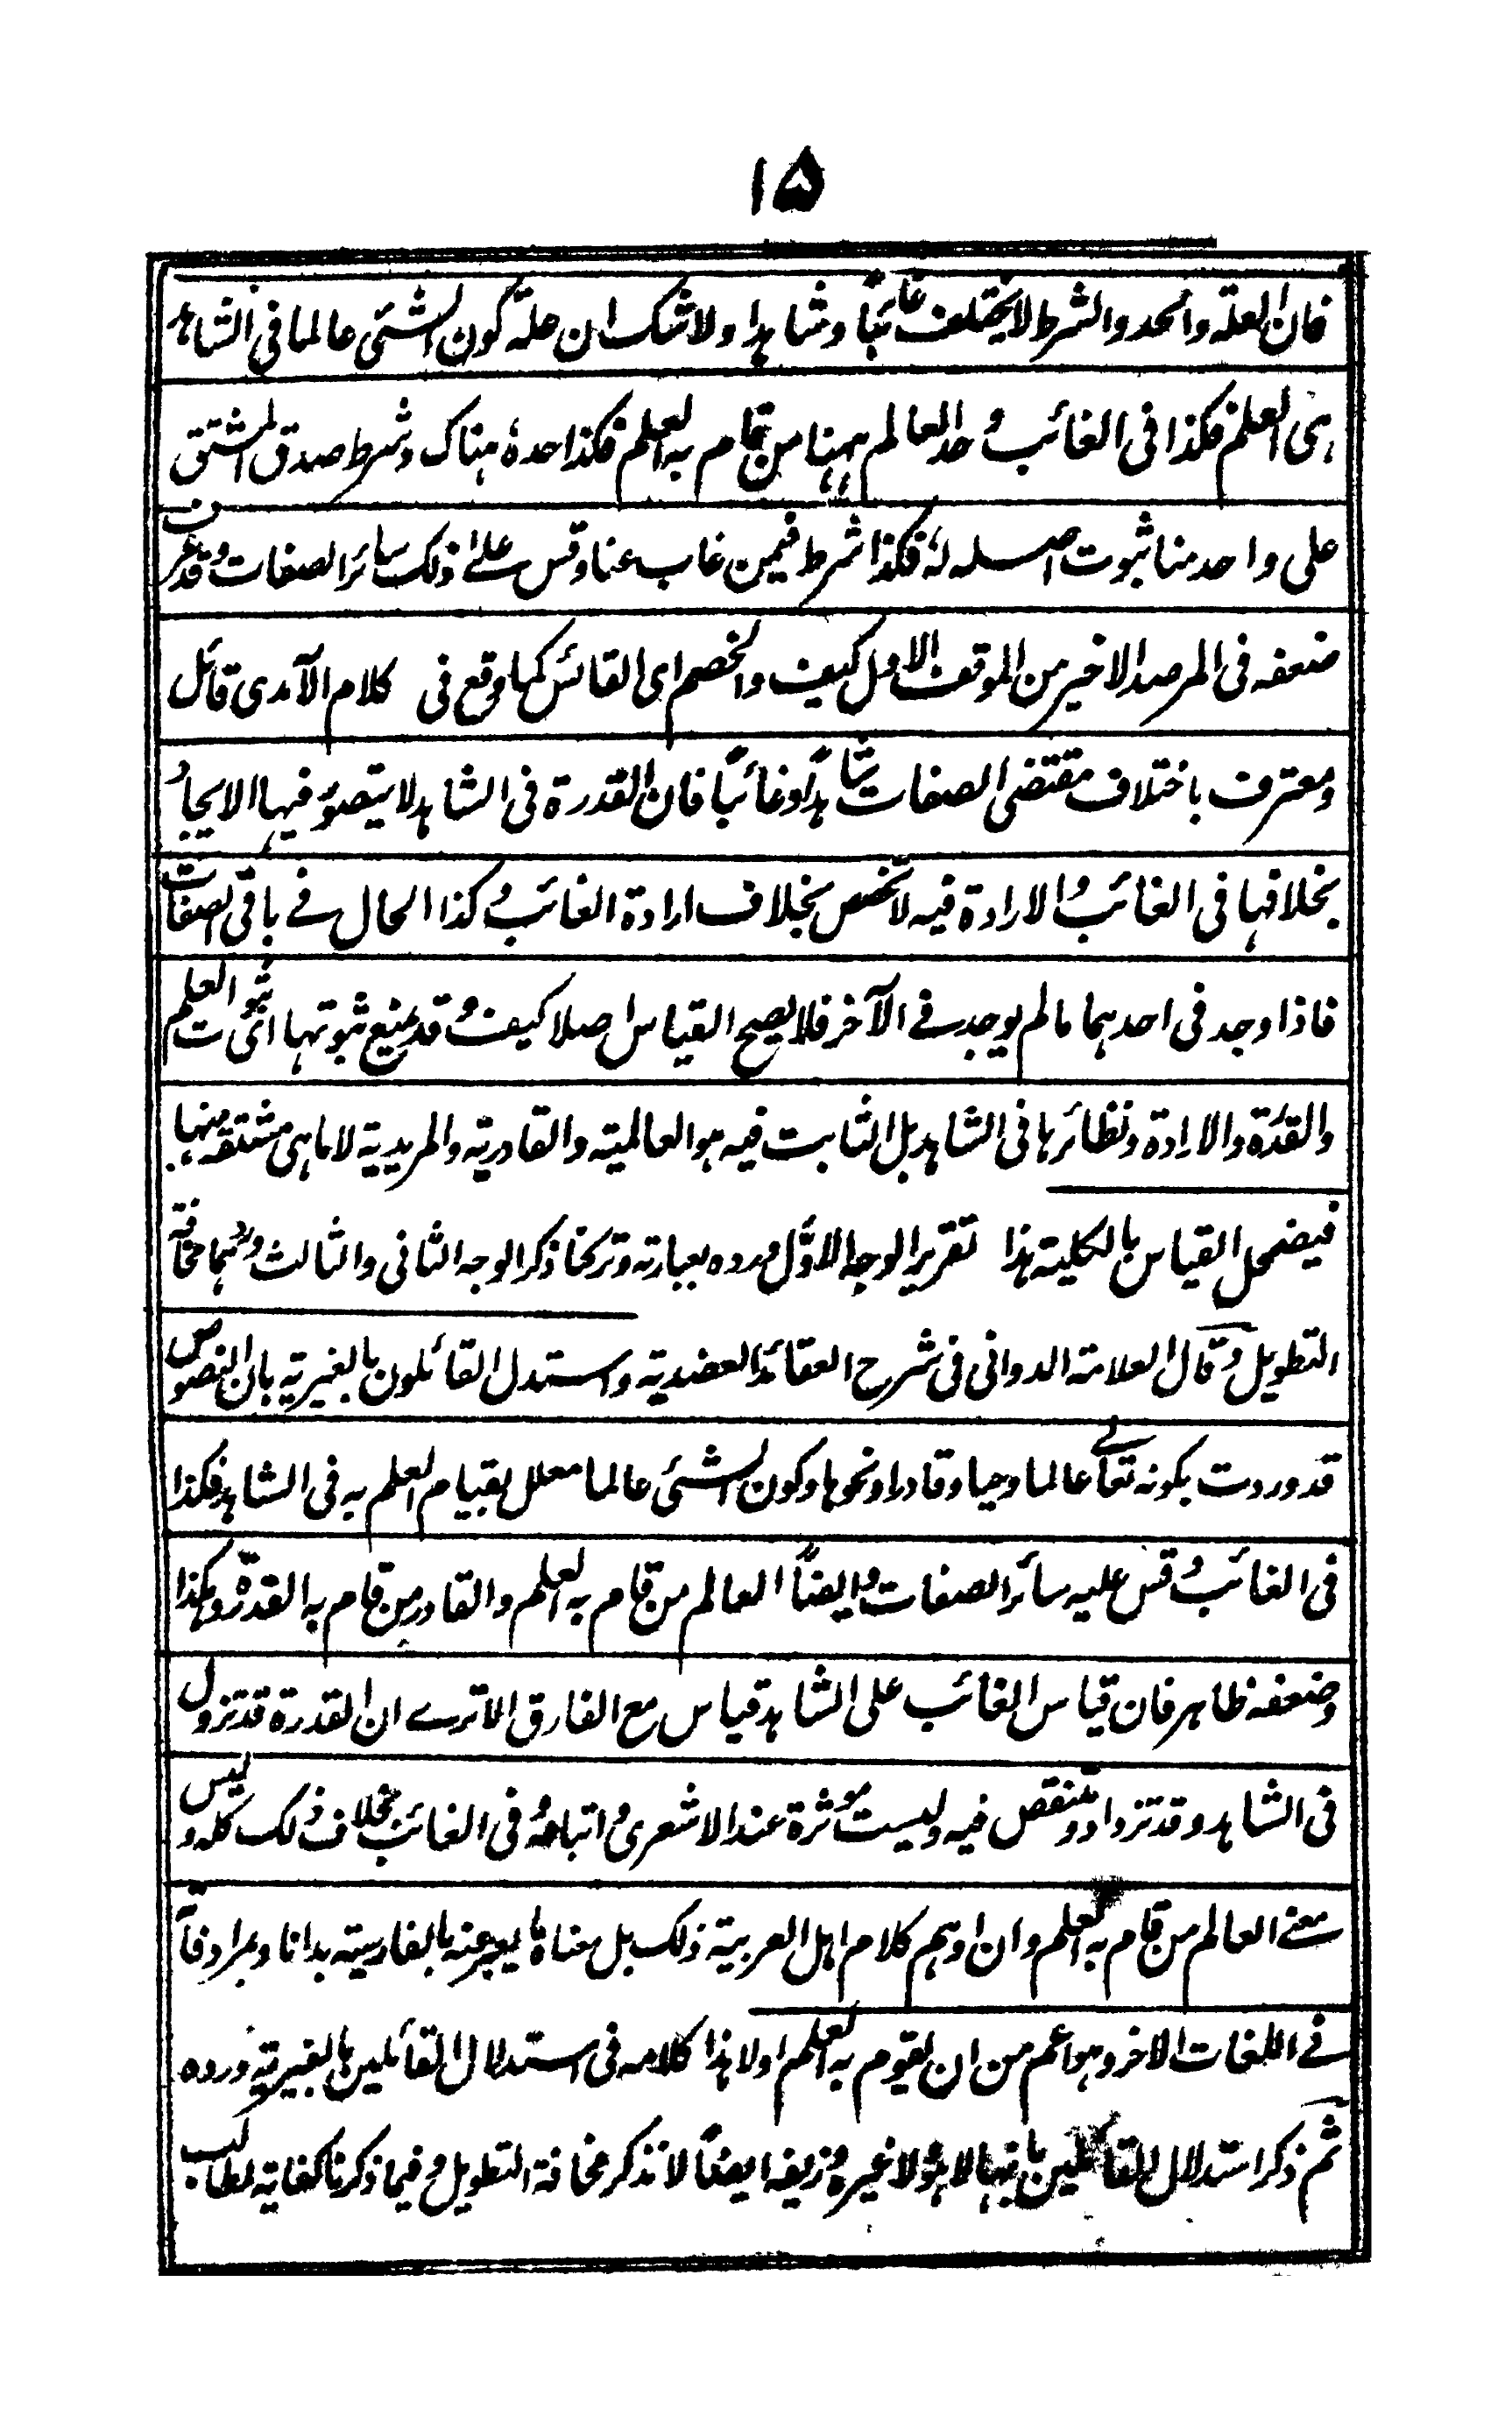 ۱۵
فان العلة والحد والشرط لا يختلف غائبًا وشاهدا ولا شك ان علة كون الشئ عالما فى الشاهد
هى العلم فكذا فى الغائب وحد العالم ههنا من قام به العلم فكذا حده هناك وشرط صدق المشتق
على واحد منا ثبوت اصله له فكذا شرط فيمن غاب عنا وقس على ذلك سائر الصفات وقد عرف
ضعفه فى المرصد الاخير من الموقف الاول كيف والخصم اى القائس كما وقع فى كلام الآمدى قائل
ومعترف باختلاف مقتضى الصفات شاهدًا وغائبًا فان القدرة فى الشاهد لا يتصور فيها الايجاد
بخلافها فى الغائب والارادة فيه لا تخصص بخلاف ارادة الغائب وكذا الحال فے باقى الصفات
فاذا وجد فى احدهما ما لم يوجد فے الآخر فلا يصح القياس اصلا كيف وقد يمنع ثبوتها اى ثبوت العلم
والقدرة والارادة ونظائرها فى الشاهد بل الثابت فيه هو العالمية والقادرية والمريدية لا ما هى مشتقة منها
فيضمحل القياس بالكلية هذا تقرير الوجه الاوّل ورده بعبارته وتركنا ذكر الوجه الثانى والثالث وردهما مخافة
التطويل وقال العلامة الدوانى فى شرح العقائد العضدية واستدل القائلون بالغيرية بان النصوص
قد وردت بكونه تعالے عالما وحيا وقادرا ونحوها وكون الشئ عالما معلل بقيام العلم به فى الشاهد فكذا
فى الغائب وقس عليه سائر الصفات وايضًا العالم من قام به العلم والقادر من قام به القدرة وهكذا
وضعفه ظاهر فان قياس الغائب على الشاهد قياس مع الفارق الا ترے ان القدرة قد تزول
فى الشاهد وقد تزداد وتنقص فيه وليست موثرة عند الاشعرى واتباعه وفى الغائب بخلاف ذلك كله وليس
معنے العالم من قام به العلم وان اوهم كلام اهل العربية ذلك بل معناه ما يعبر عنه بالفارسية بدانا وبمرادفاته
فے اللغات الاخر وهو اعم من ان يقوم به العلم اولا هذا كلامه فى استدلال القائلين بالغيرية ورده
ثم ذكر استدلال القائلين بانها لا هو ولا غيره وزيفه ايضًا لا نذكر مخافة التطويل وفيما ذكرنا كفاية لطالب